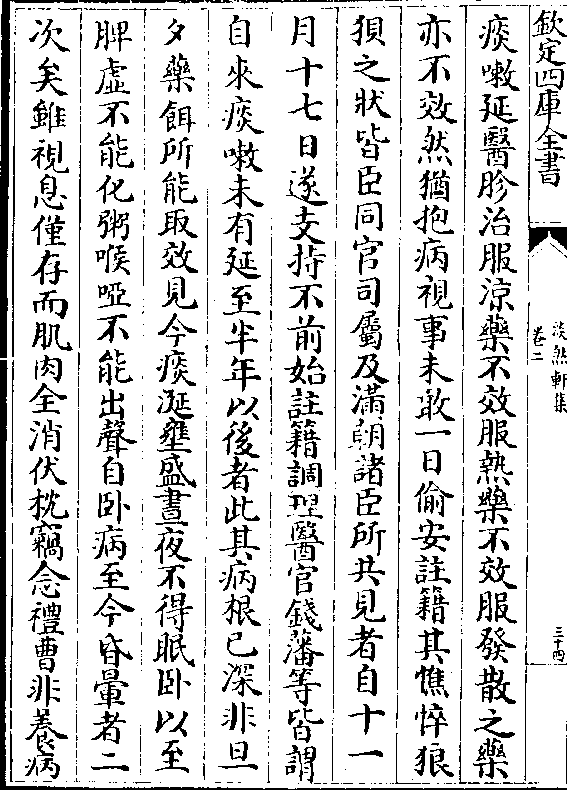 欽定四庫全書
淡然軒集
卷二
三十四
痰嗽延醫胗治服涼藥不效服熱藥不效服發散之藥
亦不效然猶抱病視事未敢一日偷安註籍其憔悴狼
狽之狀皆臣同官司屬及滿朝諸臣所共見者自十一
月十七日遂支持不前始註籍調理醫官錢藩等皆謂
自來痰嗽未有延至半年以後者此其病根已深非旦
夕藥餌所能取效見今痰涎壅盛晝夜不得眠卧以至
脾虛不能化粥喉啞不能出聲自卧病至今昏暈者二
次矣雖視息僅存而肌肉全消伏枕竊念禮曹非養病